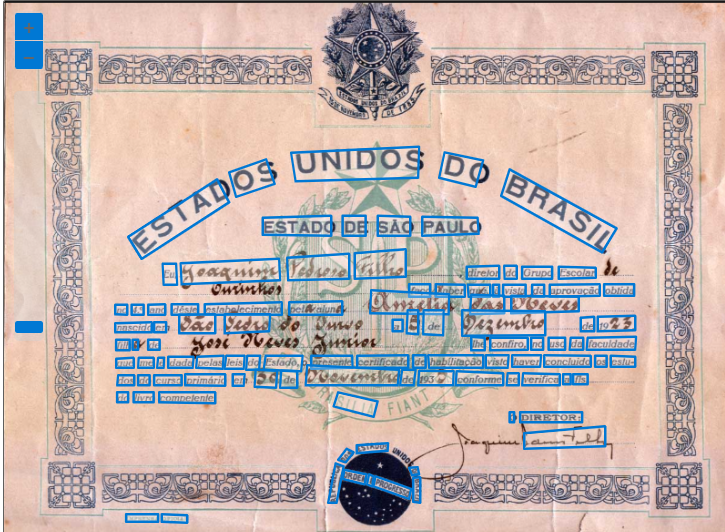 ESTADOS UNIDOS DO BRASIL
ESTADO DE SÃO PAULO
Eu, Joaquim Pedroso Filho, diretor do Grupo Escolar de
Ourinhos, faço saber que á vista da aprovação obtida
no 4.º ano dêste estabelecimento pela aluna Anzelia das Neves
nascida em São Pedro do Turvo a 5 de Dezembro de 1923
filha de José Neves Junior, lhe confiro, no uso da faculdade
que me é dada pelas leis do Estado, o presente certificado de habilitação visto haver concluido os estu-
dos do curso primário em 30 de Novembro de 193 conforme se verifica a fls.
do livro competente
BRASILIA FIANT
O DIRETOR:
Joaquim Filho
ESTADOS UNIDOS
ORDEM E PROGRESSO